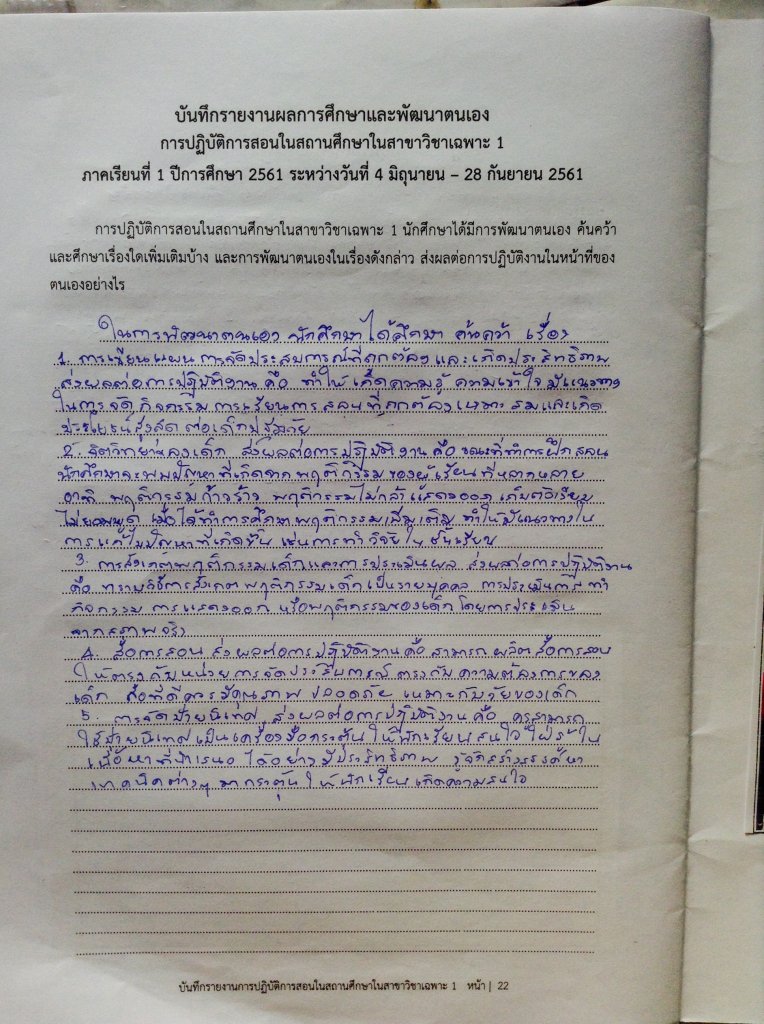 บันทึกรายงานผลการศึกษาและพัฒนาตนเอง
การปฏิบัติการสอนในสถานศึกษาในสาขาวิชาเฉพาะ 1
ภาคเรียนที่ 1 ปีการศึกษา 2561 ระหว่างวันที่ 4 มิถุนายน – 28 กันยายน 2561
การปฏิบัติการสอนในสถานศึกษาในสาขาวิชาเฉพาะ 1 นักศึกษาได้มีการพัฒนาตนเอง ค้นคว้า
และศึกษาเรื่องใดเพิ่มเติมบ้าง และการพัฒนาตนเองในเรื่องดังกล่าว ส่งผลต่อการปฏิบัติงานในหน้าที่ของ
ตนเองอย่างไร
ในการพัฒนาตนเอง นักศึกษาได้ศึกษา ค้นคว้า เรื่อง
1. การเขียนแผนการจัดประสบการณ์ที่ถูกต้อง และเกิดประสิทธิภาพ
ส่งผลต่อการปฏิบัติงาน คือ ทำให้เกิดความรู้ ความเข้าใจ มีแนวทาง
ในการจัดกิจกรรม การเรียนการสอนที่ถูกต้องเหมาะสมและเกิด
ประโยชน์สูงสุด ต่อเด็กปฐมวัย
2. จิตวิทยา ของเด็ก ส่งผลต่อการปฏิบัติงาน คือ ขณะที่ทำการฝึกสอน
นักศึกษาจะพบปัญหาที่เกิดจากพฤติกรรมของผู้เรียนที่หลากหลาย
อาทิ พฤติกรรมก้าวร้าว พฤติกรรมไม่กล้าแสดงออก เก็บตัวเงียบ
ไม่ยอมพูด เมื่อได้ทำการศึกษาพฤติกรรมเพิ่มเติม ทำให้มีแนวทางใน
การแก้ไขปัญหาที่เกิดขึ้น เช่นการทำวิจัยในชั้นเรียน
3. การสังเกตพฤติกรรมเด็กและการประเมินผล ส่งผลต่อการปฏิบัติงาน
คือ ทราบวิธีการสังเกตพฤติกรรมเด็กเป็นรายบุคคล การประเมินการทำ
กิจกรรม การแสดงออก หรือพฤติกรรมของเด็ก โดยการประเมิน
จากสภาพจริง
4. สื่อการสอน ส่งผลต่อการปฏิบัติงานคือ สามารถผลิตสื่อการสอน
ให้ตรงกับหน่วยการจัดประสบการณ์ ตรงกับความต้องการของ
เด็ก สื่อที่ดีควรมีคุณภาพ ปลอดภัย เหมาะกับวัยของเด็ก
5. การจัดป้ายนิเทศ ส่งผลต่อการปฏิบัติงาน คือ ครูสามารถ
ใช้ป้ายนิเทศเป็นเครื่องมือกระตุ้นให้นักเรียนสนใจ ใฝ่รู้ใน
เนื้อหาที่นำเสนอ ได้อย่างมีประสิทธิภาพ รู้จักสร้างสรรค์หา
เทคนิคต่างๆ มากระตุ้นให้นักเรียนเกิดความสนใจ
บันทึกรายงานการปฏิบัติการสอนในสถานศึกษาในสาขาวิชาเฉพาะ 1 หน้า | 22